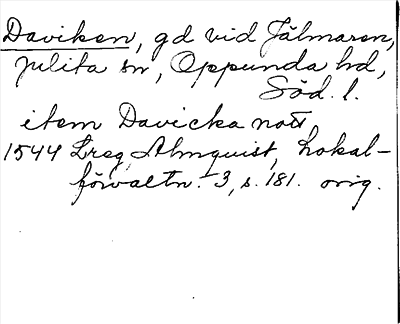 Daviken, gd vid Jälmaren,
Julita sn, Oppunda hd,
Söd. l.
item Davicka nott
1544 Lreg, Almquist, Lokal-
förvaltn. 3, s. 181. orig.